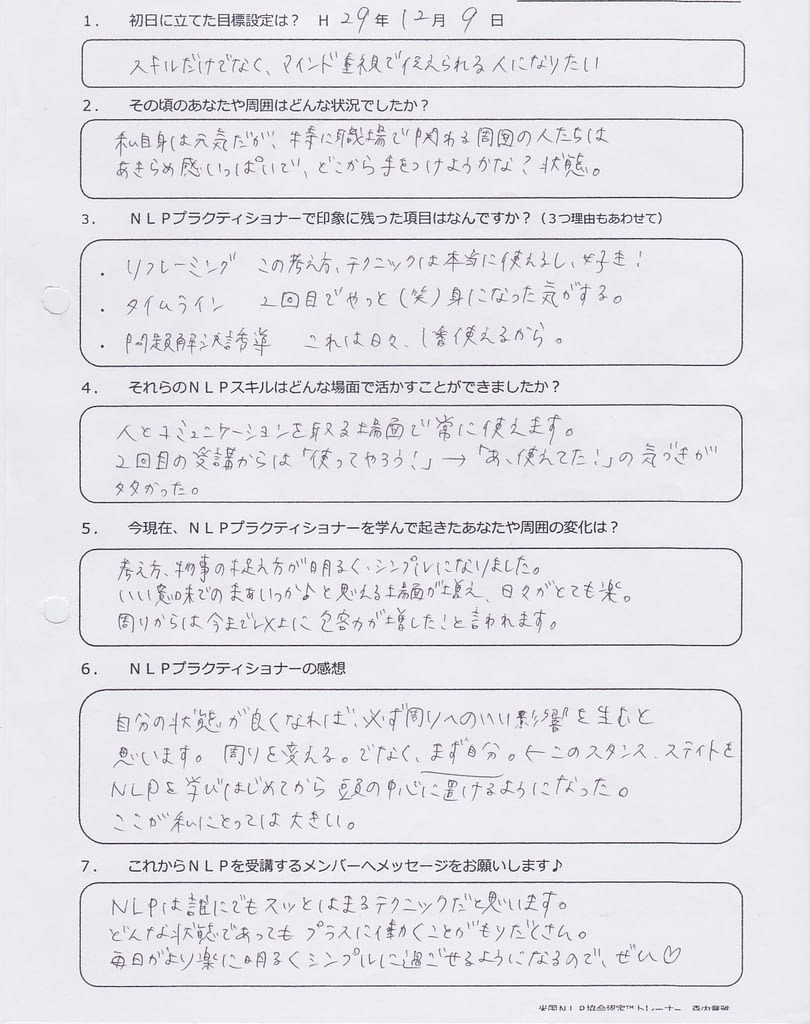 1. 初日に立てた目標設定は? H 29 年 12 月 9 日
スキルだけでなく、マインド重視で伝えられる人になりたい
2. その頃のあなたや周囲はどんな状況でしたか?
私自身は元気だが、特に職場で関わる周囲の人たちは
あきらめ感いっぱいで、どこから手をつけようかな?状態。
3. NLPプラクティショナーで印象に残った項目はなんですか?(3つ理由もあわせて)
・リフレーミング この考え方、テクニックは本当に使えるし、好き!
・タイムライン 2回目でやっと(笑)身になった気がする。
・問題解決誘導 これは日々、1番使えるから。
4. それらのNLPスキルはどんな場面で活かすことができましたか?
人とコミュニケーションを取る場面で常に使えます。
2回目の受講からは「使ってやろう!」→「あ、使えてた!」の気づきが
多かった。
5. 今現在、NLPプラクティショナーを学んで起きたあなたや周囲の変化は?
考え方、物事の捉え方が明るく、シンプルになりました。
いい意味でのまあいっか♪と思える場面が増え、日々がとても楽。
周りからは今まで以上に包容力が増したこと言われます。
6. NLPプラクティショナーの感想
自分の状態が良くなれば、必ず周りへのいい影響を生むと
思います。周りを変える。でなく、まず自分。←このスタンス、ステイトを
NLPを学びはじめてから頭の中心に置けるようになった。
ここが私にとっては大きい。
7. これからNLPを受講するメンバーへメッセージをお願いします♪
NLPは誰にでもスッとはまるテクニックだと思います。
どんな状態であってもプラスに働くことがもりだくさん。
毎日がより楽に明るくシンプルに過ごせるようになるので、ぜひ♡
米国NLP協会認定™トレーナー